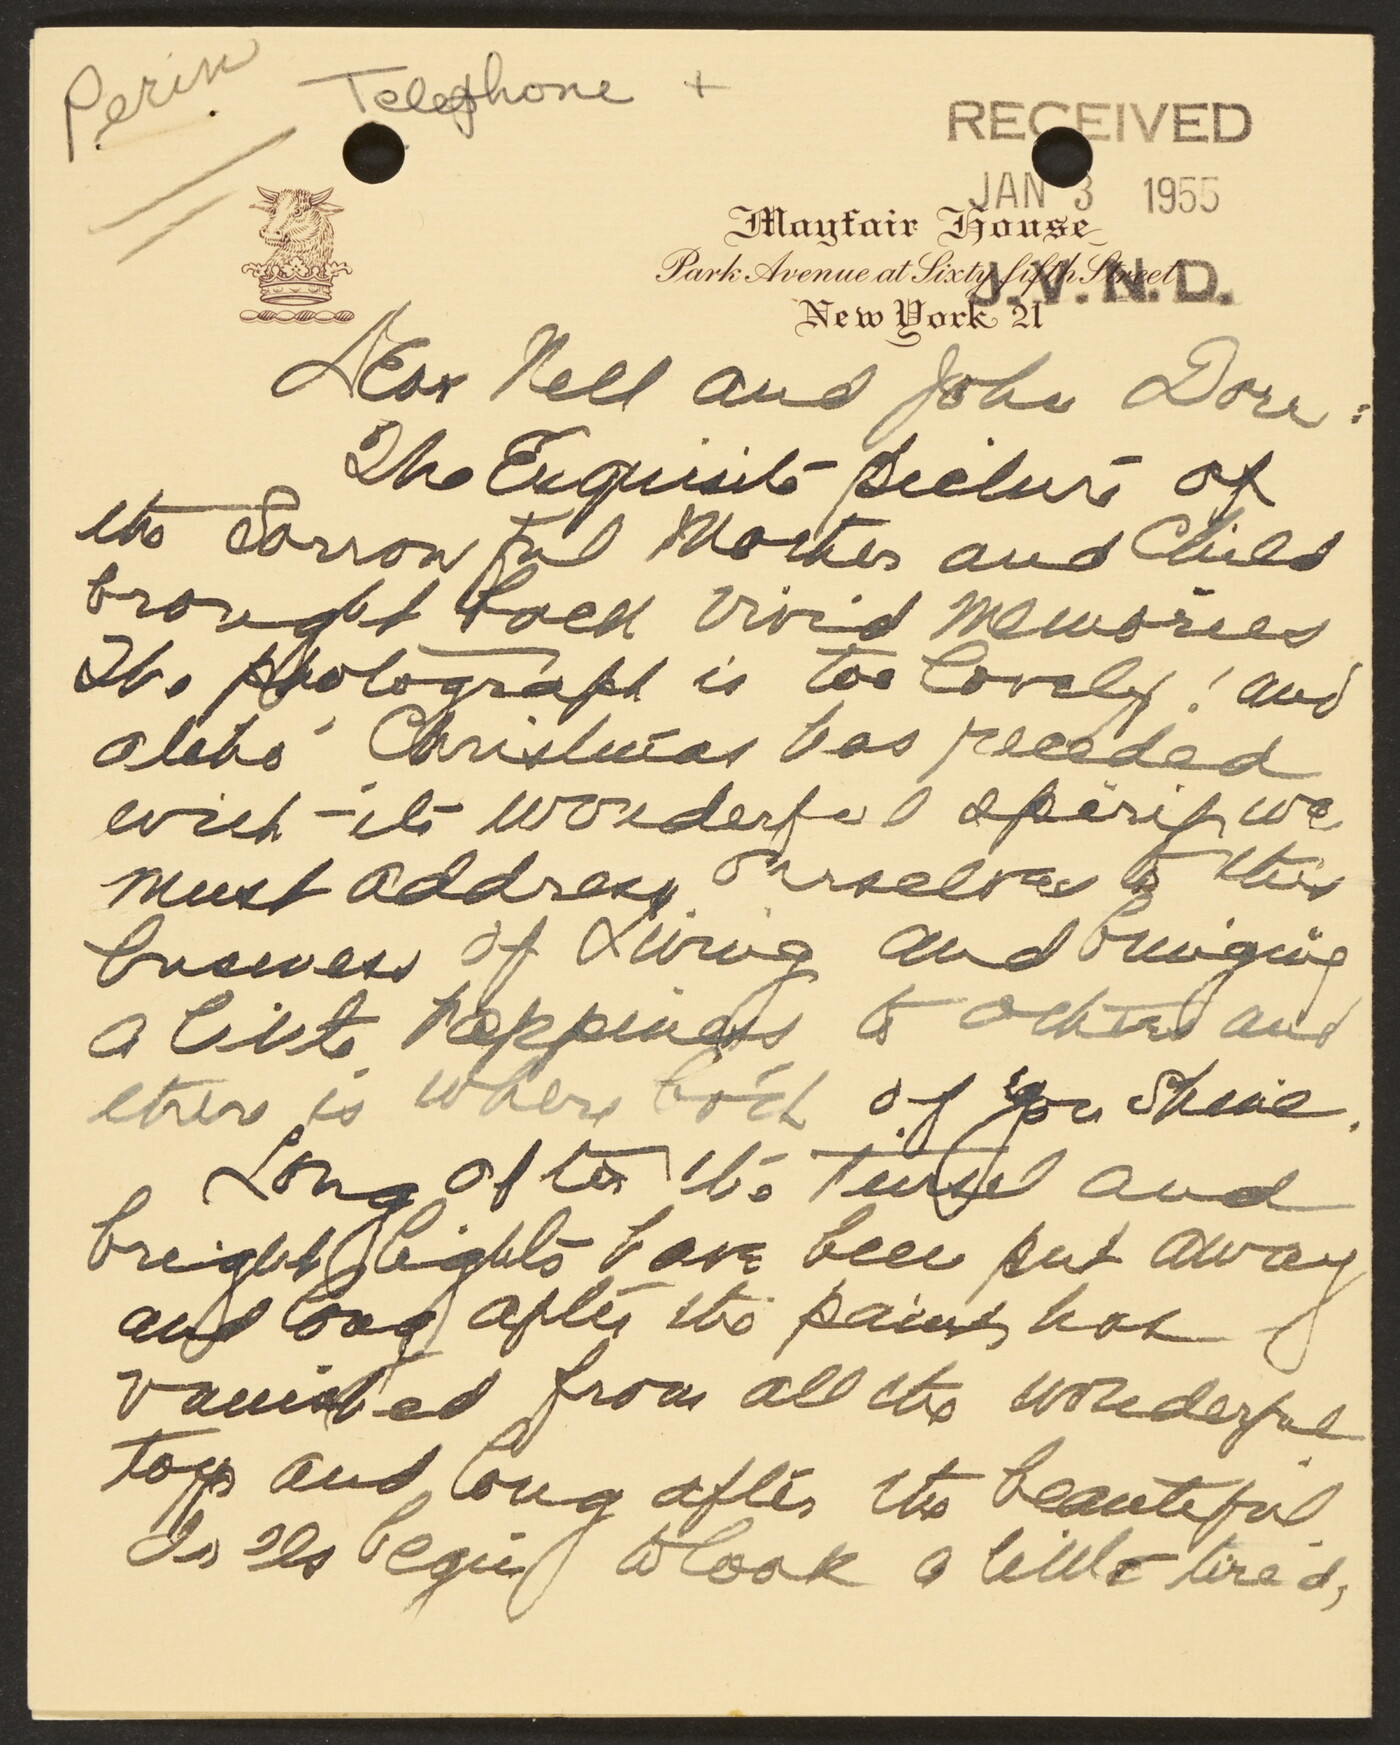 Perin
Telephone +
RECEIVED
JAN 3 1955
J.V.N.D.
Mayfair House
Park Avenue at Sixty-fifth Street
New York 21
Dear Nell and John Dorr:
The Exquisite picture of
the Sorrowful Mother and Child
brought back vivid memories
The photograph is too lovely! and
altho' Christmas has receded
with its wonderful spirit, we
must address ourselves to this
business of Living and bringing
a little happiness to others and
there is where both of you shine.
Long after the Tinsel and
bright lights have been put away
and long after the paint has
vanished from all the wonderful
toys and long after the beautiful
begin to look a little tired,